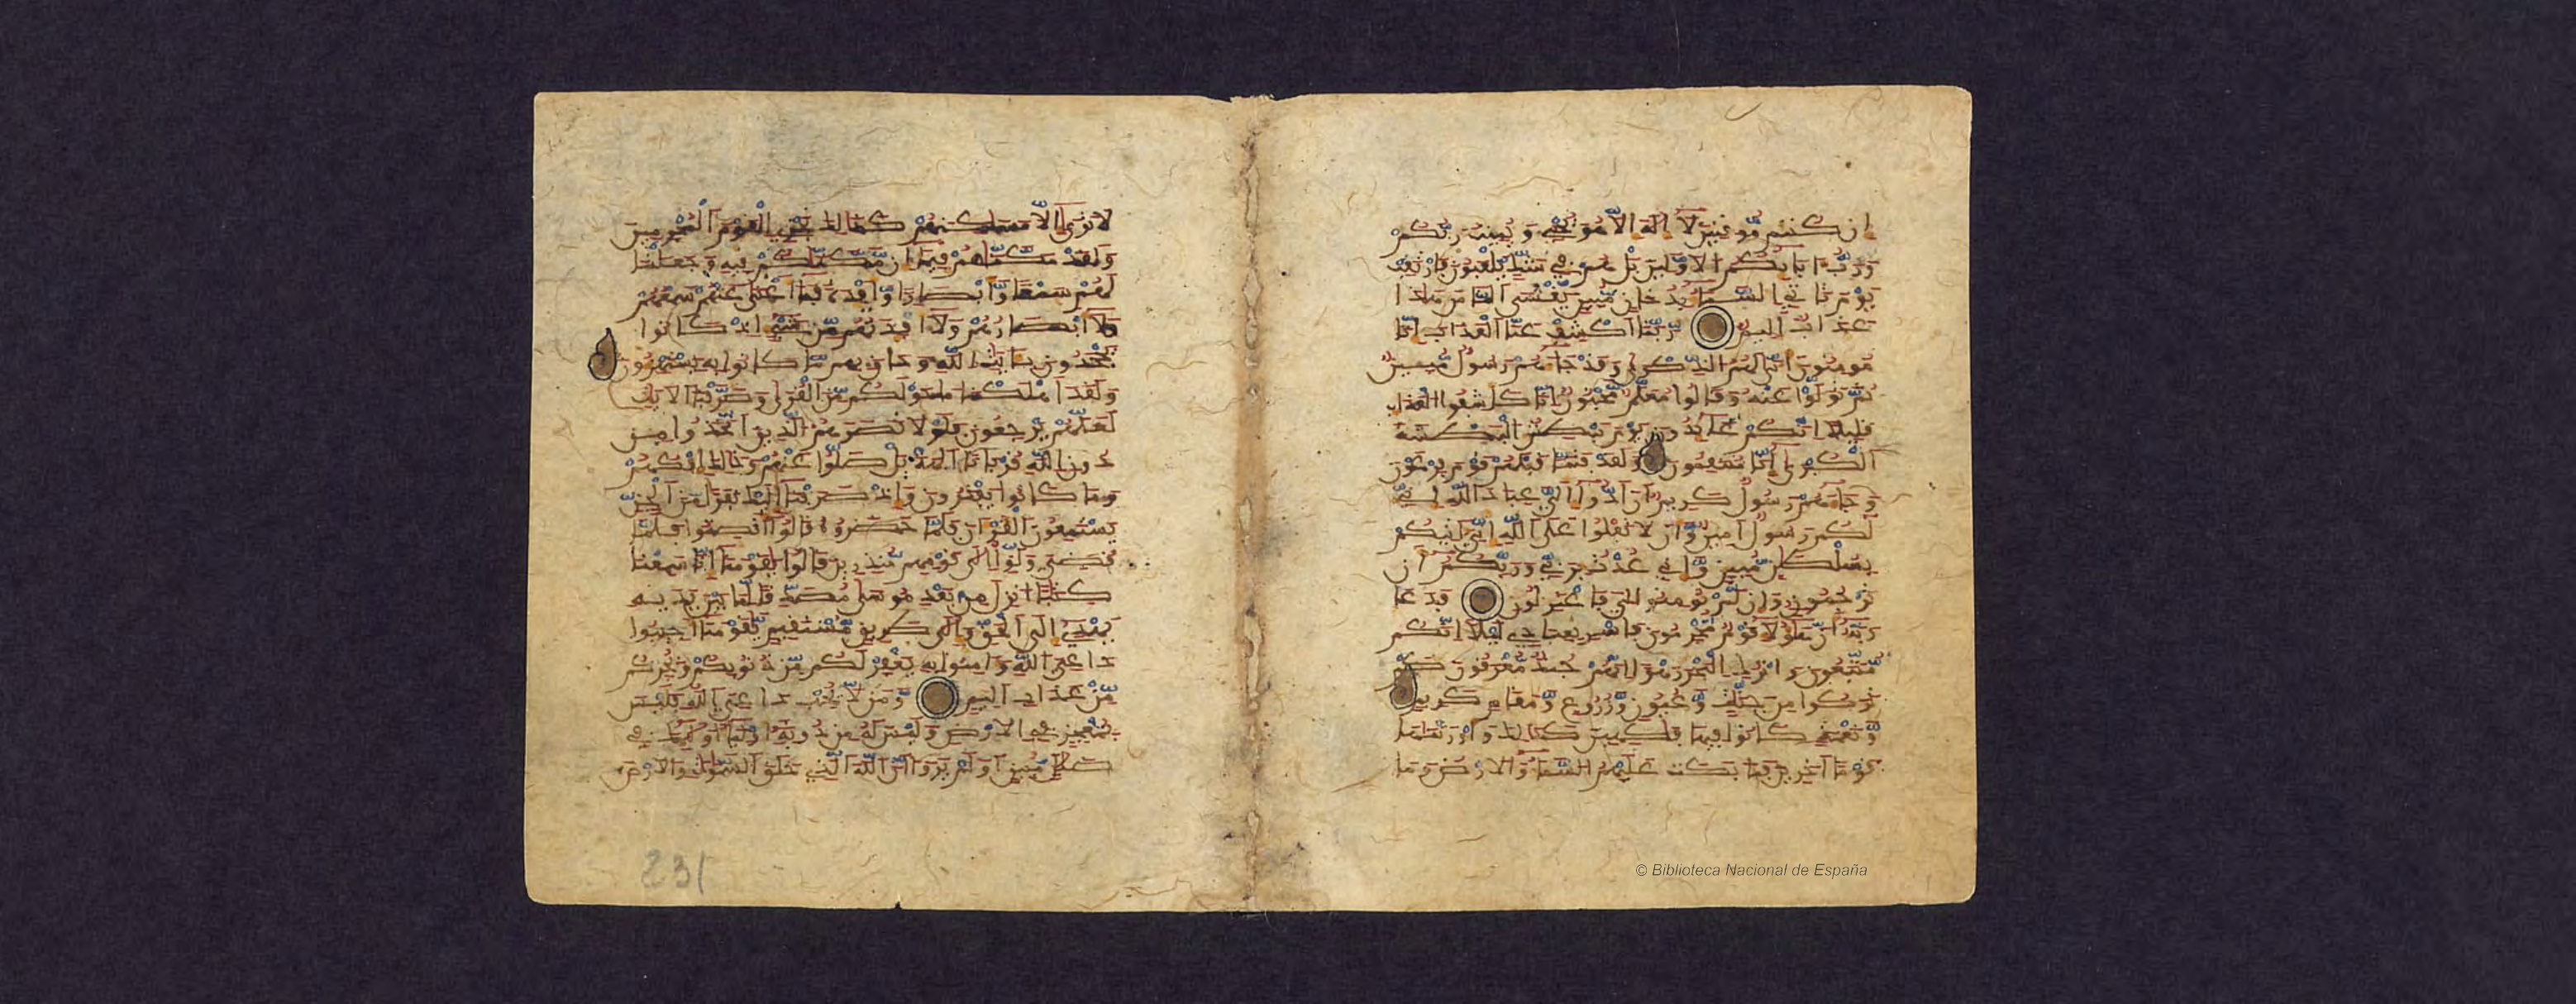 ان كنتم موقنين لا اله الا هو يحي ويميت ربكم
ورب ابايكم الاولين بل هم في شك يلعبون فارتقب
يوم تاتي السما بدخان مبين يغشى الناس هذا
عذاب اليم ربنا اكشف عنا العذاب انا
مومنون انى لهم الذكرى وقد جاهم رسول مبين
ثم تولوا عنه وقالوا معلم مجنون انا كاشفوا العذاب
قليلا انكم عايدون يوم نبطش البطشة
الكبرى انا منتقمون ولقد فتنا قبلهم قوم فرعون
وجاهم رسول كريم ان ادوا الي عباد الله اني
لكم رسول امين وان لا تعلوا على الله اني اتيكم
بسلطن مبين واني عذت بربي وربكم ان
ترجمون وان لم تومنوا لي فاعتزلون فدعا
ربه ان هولا قوم مجرمون فاسر بعبادي ليلا انكم
متبعون واترك البحر رهوا انهم جند مغرقون كم
تركوا من جنت وعيون وزروع ومقام كريم
ونعمة كانوا فيها فكهين كذلك واورثنها
قوما اخرين فما بكت عليهم السما والارض وما
لا ترى الا مسكنهم كذلك نجزي القوم المجرمين
ولقد مكنهم فيما ان مكنكم فيه وجعلنا
لهم سمعا وابصارا وافدة فما اغنى عنهم سمعهم
ولا ابصارهم ولا افدتهم من شي اذ كانوا
يجحدون بايت الله وحاق بهم ما كانوا به يستهزون
ولقد اهلكنا ما حولكم من القرى وصرفنا الايت
لعلهم يرجعون فلولا نصرهم الذين اتخذوا من
دون الله قربانا الهة بل ضلوا عنهم وذلك افكهم
وما كانوا يفترون واذ صرفنا اليك نفرا من الجن
يستمعون القران فلما حضروه قالوا انصتوا فلما
قضي ولوا الى قومهم منذرين قالوا يقومنا انا سمعنا
كتبا انزل من بعد موسى مصدقا لما بين يديه
يهدي الى الحق والى طريق مستقيم يقومنا اجيبوا
داعي الله وامنوا به يغفر لكم من ذنوبكم ويجركم
من عذاب اليم ومن لا يجب داعي الله فليس
بمعجز في الارض وليس له من دونه اوليا اوليك في
ضلل مبين اولم يروا ان الله الذي خلق السموت والارض
231
© Biblioteca Nacional de España